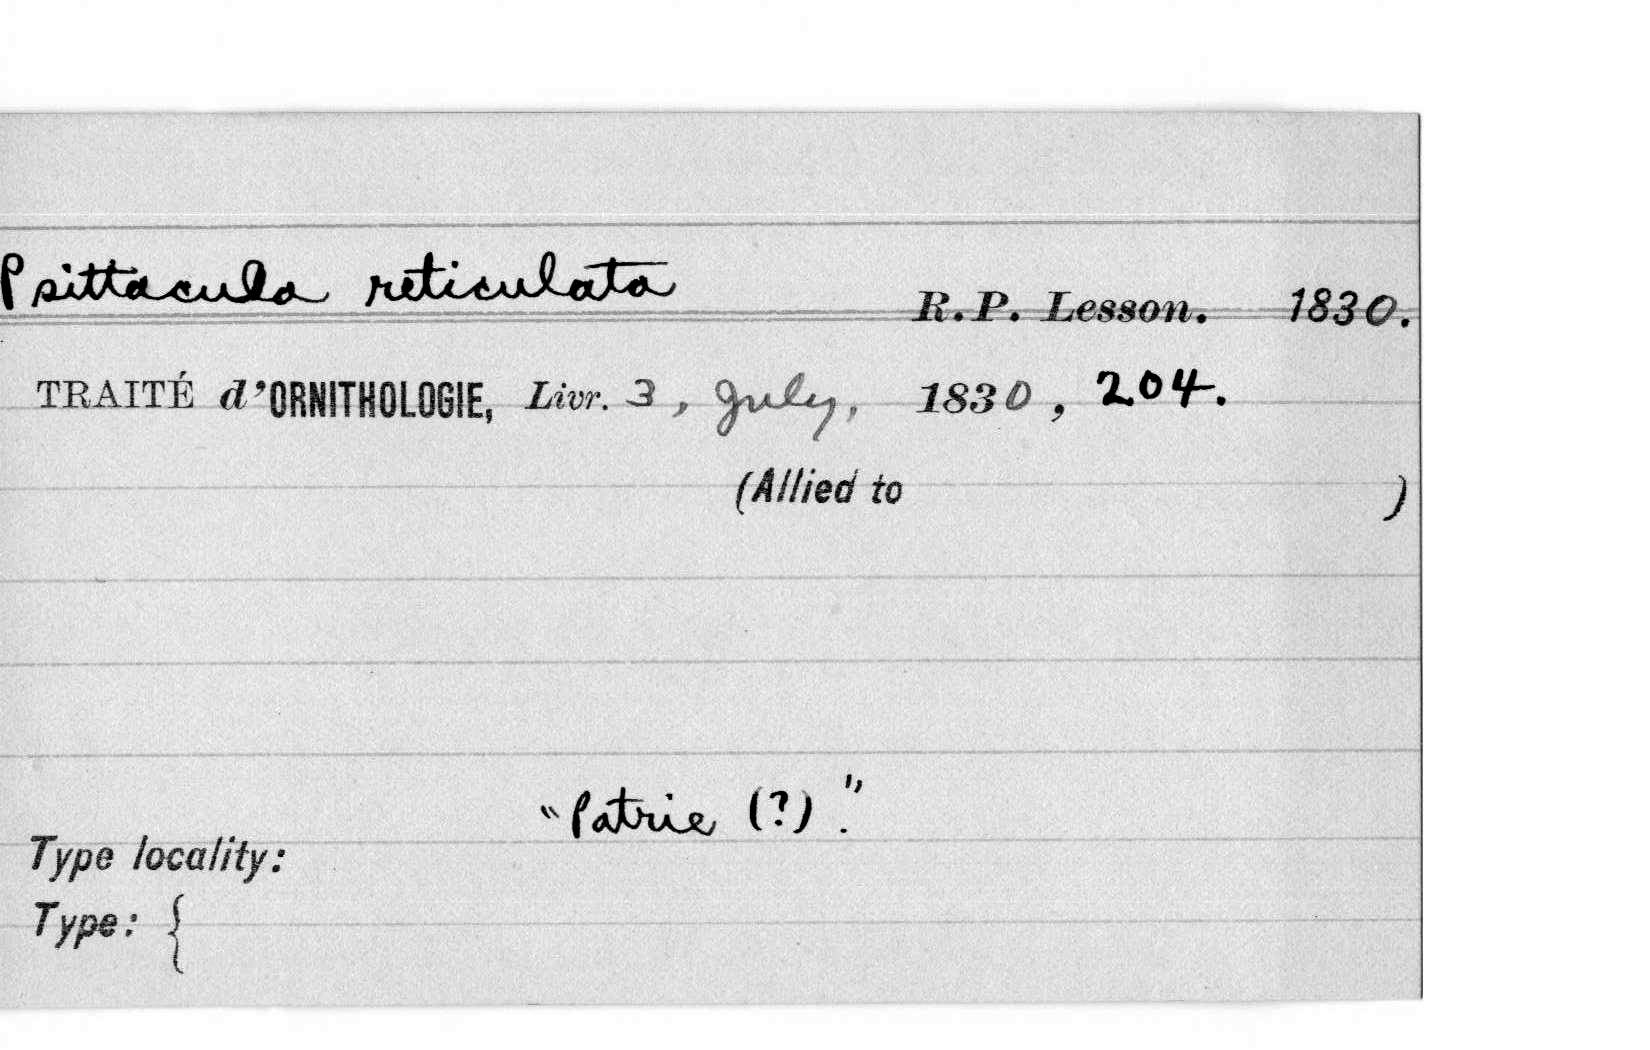 Psittacula reticulata R.P. Lesson. 1830.
TRAITÉ d'ORNITHOLOGIE, Livr. 3, July, 1830, 204.
(Allied to )
"Patrie (?)."
Type locality:
Type: {